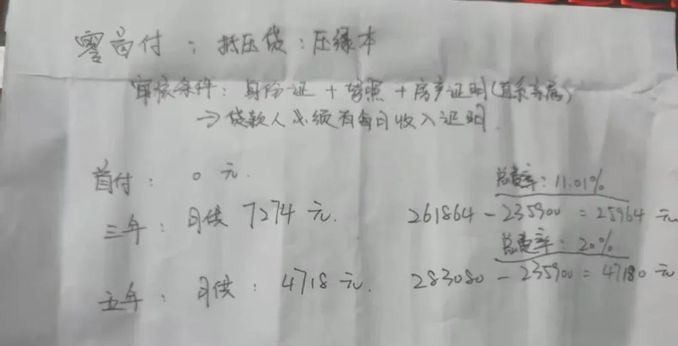 零首付：抵压贷：压绿本
审核条件：身份证 + 驾照 + 房产证明(直系亲属)
→ 贷款人必须有每月收入证明
首付：0元.
总费率：11.01%
三年：月供 7274 元. 261864 - 235900 = 25964 元
总费率：20%
五年：月供：4718 元. 283080 - 235900 = 47180 元